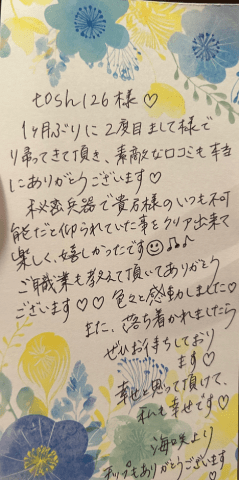 tosh126様♡
1ヶ月ぶりに2度目まして様で
り帰ってきて頂き、素敵な口コミも本当
にありがとうございます♡
秘密兵器で貴方様のいつも不可
能だと仰られていた事をクリア出来て
楽しく、嬉しかったです☺♫♪
ご職業も教えて頂いてありがとう
ございます♡♡色々と感動しました♡
また、落ち着かれましたら
ぜひお待ちしており
ます♡
幸せと思って頂けて、
私も幸せです♡
海咲より
チップもありがとうございます